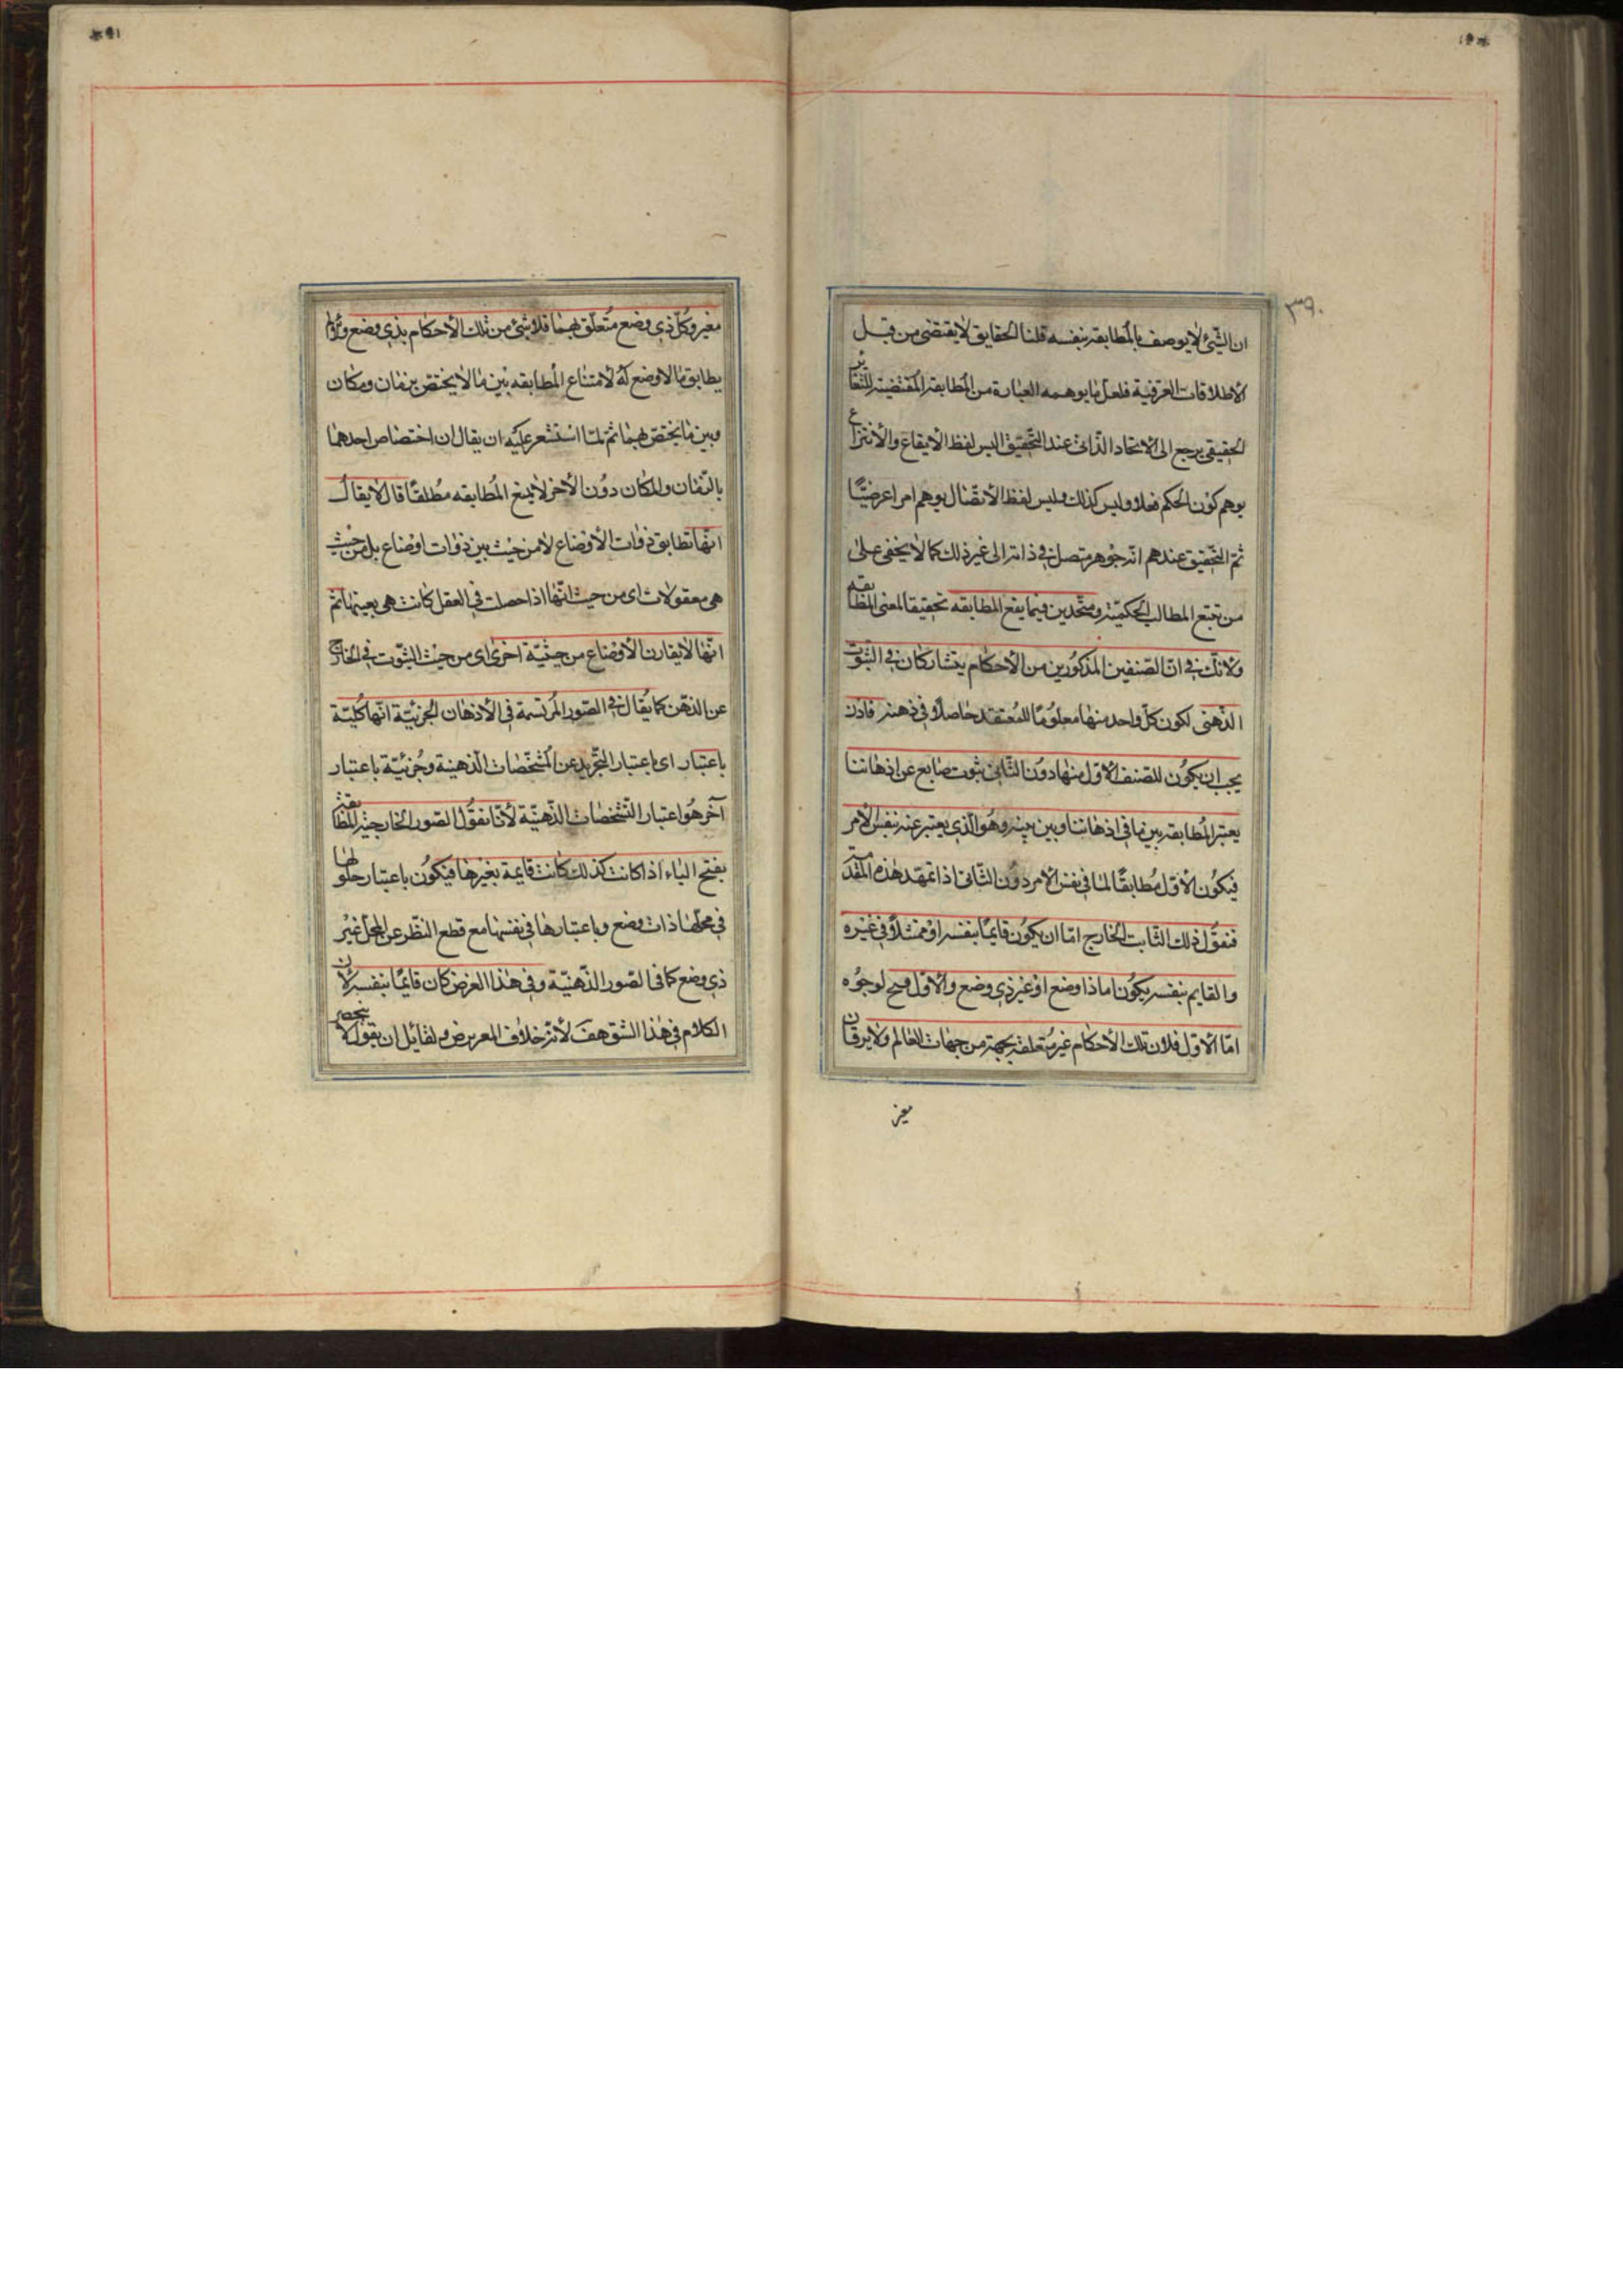 ٣٩٠
ان الشئ لا يوصف بالمطابقه بنفسه قلنا الحقايق لا يقتضى من قبل
الاطلاقات العرفية فلعل ما يوهمه العبارة من المطابقه المقتضية للتغاير
الحقيقى يرجع الى الاتحاد الذاتى عند التحقيق اليس لفظ الايقاع والانتزاع
يوهم كون الحكم فعلا وليس كذلك وليس لفظ الاتصال يوهم امرا عرضيا
ثم التحقيق عندهم انه جوهر متصل فى ذاته الى غير ذلك كما لا يخفى على
من تتبع المطالب الحكمية ومتحدين فيما يقع المطابقه تحقيقا لمعنى المطابقه
ولا شك فى ان الصنفين المذكورين من الاحكام يتشاركان فى الثبوت
الذهنى لكون كل واحد منهما معلوما للمعتقد حاصلا فى ذهنه فاذن
يجب ان يكون للصنف الاول منهما دون الثانى ثبوت خارج عن اذهاننا
يعتبر المطابقه بين ما فى اذهاننا وبين بينه وهو الذى يعتبر عنه بنفس الامر
فيكون الاول مطابقا لما فى نفس الامر دون الثانى اذا تمهد هذه المقدمة
فنقول ذلك الثابت الخارج اما ان يكون قايما بنفسه او ممثلا فى غيره
والقايم بنفسه يكون اما ذا وضع او غير ذى وضع والاول مح لوجوه
اما الاول فلان تلك الاحكام غير متعلقه بجهة من جهات العالم ولا بزمان
معين
معين وكل ذى وضع متعلق بهما فلا شئ من تلك الاحكام بذى وضع
يطابق ما لا وضع له لامتناع المطابقه بين ما لا يختص بزمان ومكان
وبين ما يختص بهما ثم لما استشعر عليه ان يقال ان اختصاص احدهما
بالزمان والمكان دون الاخر لا يمنع المطابقه مطلقا قال لا يقال
انها تطابق ذوات الاوضاع لا من حيث بين ذوات اوضاع بل من حيث
هى معقولات اى من حيث انها اذا حصلت فى العقل كانت هى بعينها ثم
انها لا يقارن الاوضاع من حيثية اخرى اى من حيث الثبوت فى الخارج
عن الذهن كما يقال فى الصور المرتسمة فى الاذهان الجزئية انها كلية
باعتبار اى باعتبار التجريد عن المشخصات الذهنية وجزئية باعتبار
آخر هو اعتبار التشخصات الذهنية لانا نقول الصور الخارجية المطابقه
بفتح الباء اذا كانت كذلك كانت قايمة بغيرها فيكون باعتبار حلولها
فى محلها ذات وضع وباعتبارها فى نفسها مع قطع النظر عن المحل غير
ذى وضع كما فى الصور الذهنية وفى هذا الفرض كان قايما بنفسه لان
الكلام فى هذا الشق هف لانه خلاف المفروض ولقايل ان يقول لا ينحصر